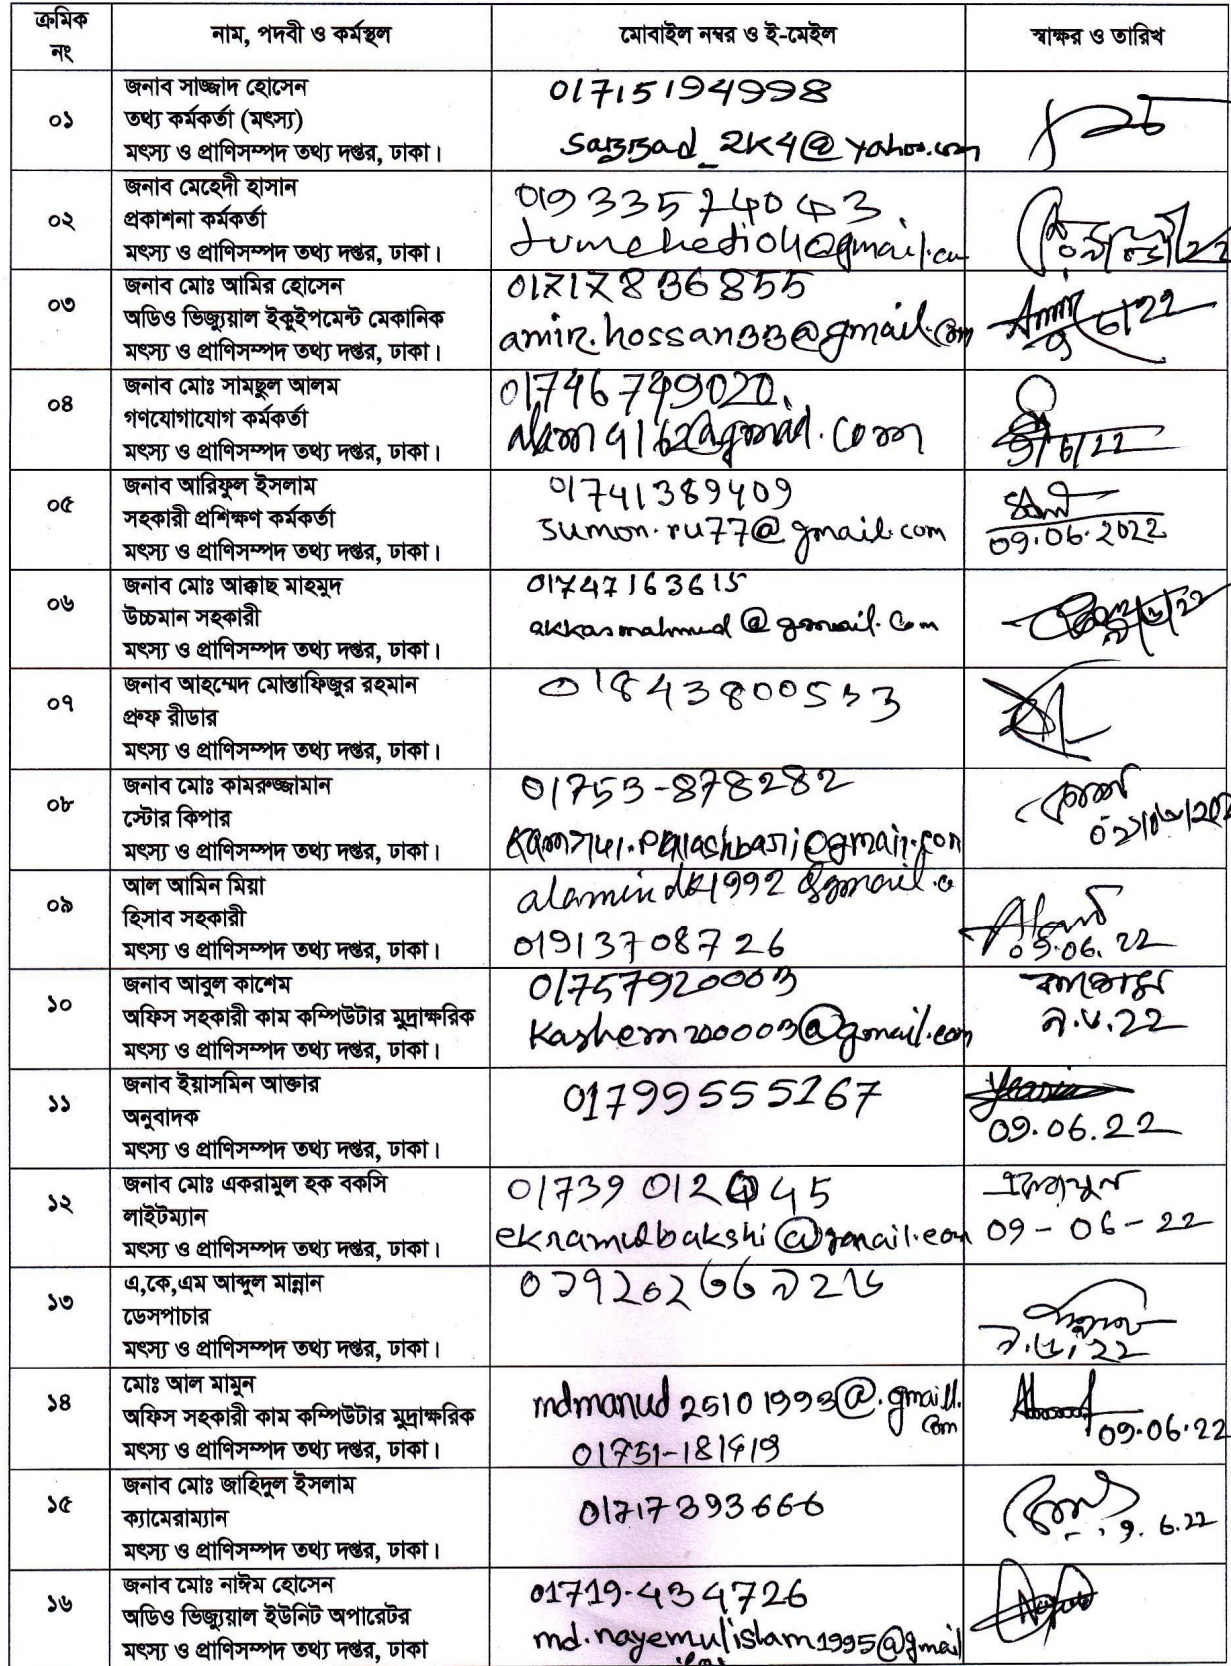 ক্রমিক
নং
নাম, পদবী ও কর্মস্থল
মোবাইল নম্বর ও ই-মেইল
স্বাক্ষর ও তারিখ
০১
জনাব সাজ্জাদ হোসেন
তথ্য কর্মকর্তা (মৎস্য)
মৎস্য ও প্রাণিসম্পদ তথ্য দপ্তর, ঢাকা।
01715194998
০২
জনাব মেহেদী হাসান
প্রকাশনা কর্মকর্তা
মৎস্য ও প্রাণিসম্পদ তথ্য দপ্তর, ঢাকা।
০৩
জনাব মোঃ আমির হোসেন
অডিও ভিজ্যুয়াল ইকুইপমেন্ট মেকানিক
মৎস্য ও প্রাণিসম্পদ তথ্য দপ্তর, ঢাকা।
01717836855
amir.hossan33@gmail.com
০৪
জনাব মোঃ সামছুল আলম
গণযোগাযোগ কর্মকর্তা
মৎস্য ও প্রাণিসম্পদ তথ্য দপ্তর, ঢাকা।
01746749020
০৫
জনাব আরিফুল ইসলাম
সহকারী প্রশিক্ষণ কর্মকর্তা
মৎস্য ও প্রাণিসম্পদ তথ্য দপ্তর, ঢাকা।
01741389409
sumon.ru77@gmail.com
09.06.2022
০৬
জনাব মোঃ আক্কাছ মাহমুদ
উচ্চমান সহকারী
মৎস্য ও প্রাণিসম্পদ তথ্য দপ্তর, ঢাকা।
01747163615
akkasmahmud@gmail.com
০৭
জনাব আহম্মেদ মোস্তাফিজুর রহমান
প্রুফ রীডার
মৎস্য ও প্রাণিসম্পদ তথ্য দপ্তর, ঢাকা।
০৮
জনাব মোঃ কামরুজ্জামান
স্টোর কিপার
মৎস্য ও প্রাণিসম্পদ তথ্য দপ্তর, ঢাকা।
01753-878282
০৯
আল আমিন মিয়া
হিসাব সহকারী
মৎস্য ও প্রাণিসম্পদ তথ্য দপ্তর, ঢাকা।
01913708726
09.06.22
১০
জনাব আবুল কাশেম
অফিস সহকারী কাম কম্পিউটার মুদ্রাক্ষরিক
মৎস্য ও প্রাণিসম্পদ তথ্য দপ্তর, ঢাকা।
01757920003
৯.৬.22
১১
জনাব ইয়াসমিন আক্তার
অনুবাদক
মৎস্য ও প্রাণিসম্পদ তথ্য দপ্তর, ঢাকা।
01799555267
09.06.22
১২
জনাব মোঃ একরামুল হক বকসি
লাইটম্যান
মৎস্য ও প্রাণিসম্পদ তথ্য দপ্তর, ঢাকা।
09-06-22
১৩
এ,কে,এম আব্দুল মান্নান
ডেসপাচার
মৎস্য ও প্রাণিসম্পদ তথ্য দপ্তর, ঢাকা।
৯.৬.22
১৪
মোঃ আল মামুন
অফিস সহকারী কাম কম্পিউটার মুদ্রাক্ষরিক
মৎস্য ও প্রাণিসম্পদ তথ্য দপ্তর, ঢাকা।
01751-181419
09.06.22
১৫
জনাব মোঃ জাহিদুল ইসলাম
ক্যামেরাম্যান
মৎস্য ও প্রাণিসম্পদ তথ্য দপ্তর, ঢাকা।
01717393666
9.6.22
১৬
জনাব মোঃ নাঈম হোসেন
অডিও ভিজ্যুয়াল ইউনিট অপারেটর
মৎস্য ও প্রাণিসম্পদ তথ্য দপ্তর, ঢাকা
01719-434726
md.nayemulislam1995@gmail